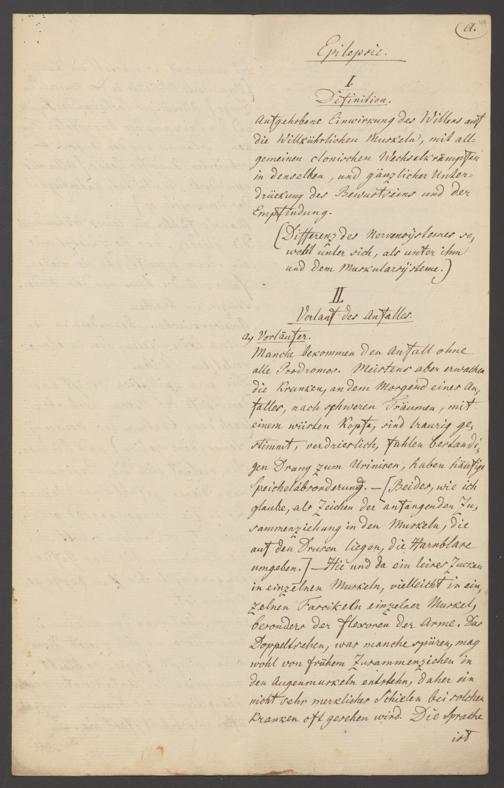 A.
Epilepsie.
I.
Definition.
Aufgehobene Einwirkung des Willens auf
die Willkührlichen Muskeln, mit all-
gemeinen clonischen Wechselkrämpfen
in denselben, und gänzlicher Unter-
drückung des Bewustseins und der
Empfindung.
(Differenz des Nervensÿstemes so,
wohl unter sich, als unter ihm
und dem Muskularsÿsteme.)
II.
Verlauf des Anfalles.
a) Vorläufer.
Manche bekommen den Anfall ohne
alle Prodromos. Meistens aber erwachen
die Kranken, an dem Morgend eines An,
falles, nach schweren Träumen, mit
einem wüsten Kopfe, sind traurig ge,
stimmt, verdrieslich, fühlen beständi,
gen Drang zum Uriniren, haben häufige
Speichelabsonderung. — [Beides, wie ich
glaube, als Zeichen der anfangenden Zu,
sammenziehung in den Muskeln, die
auf den Drüsen liegen, die Harnblase
umgeben.] — Hie und da ein leises Zucken
in einzelnen Muskeln, vielleicht in ein,
zelnen Fascikeln einzelner Muskel,
besonders der flexoren der Arme. Das
Doppeltsehen, was manche spüren, mag
wohl von frühem Zusammenziehen in
den Augenmuskeln entstehn, daher ein
nicht sehr merklicher Schielen bei solchen
Kranken oft gesehen wird. Die Sprache
ist